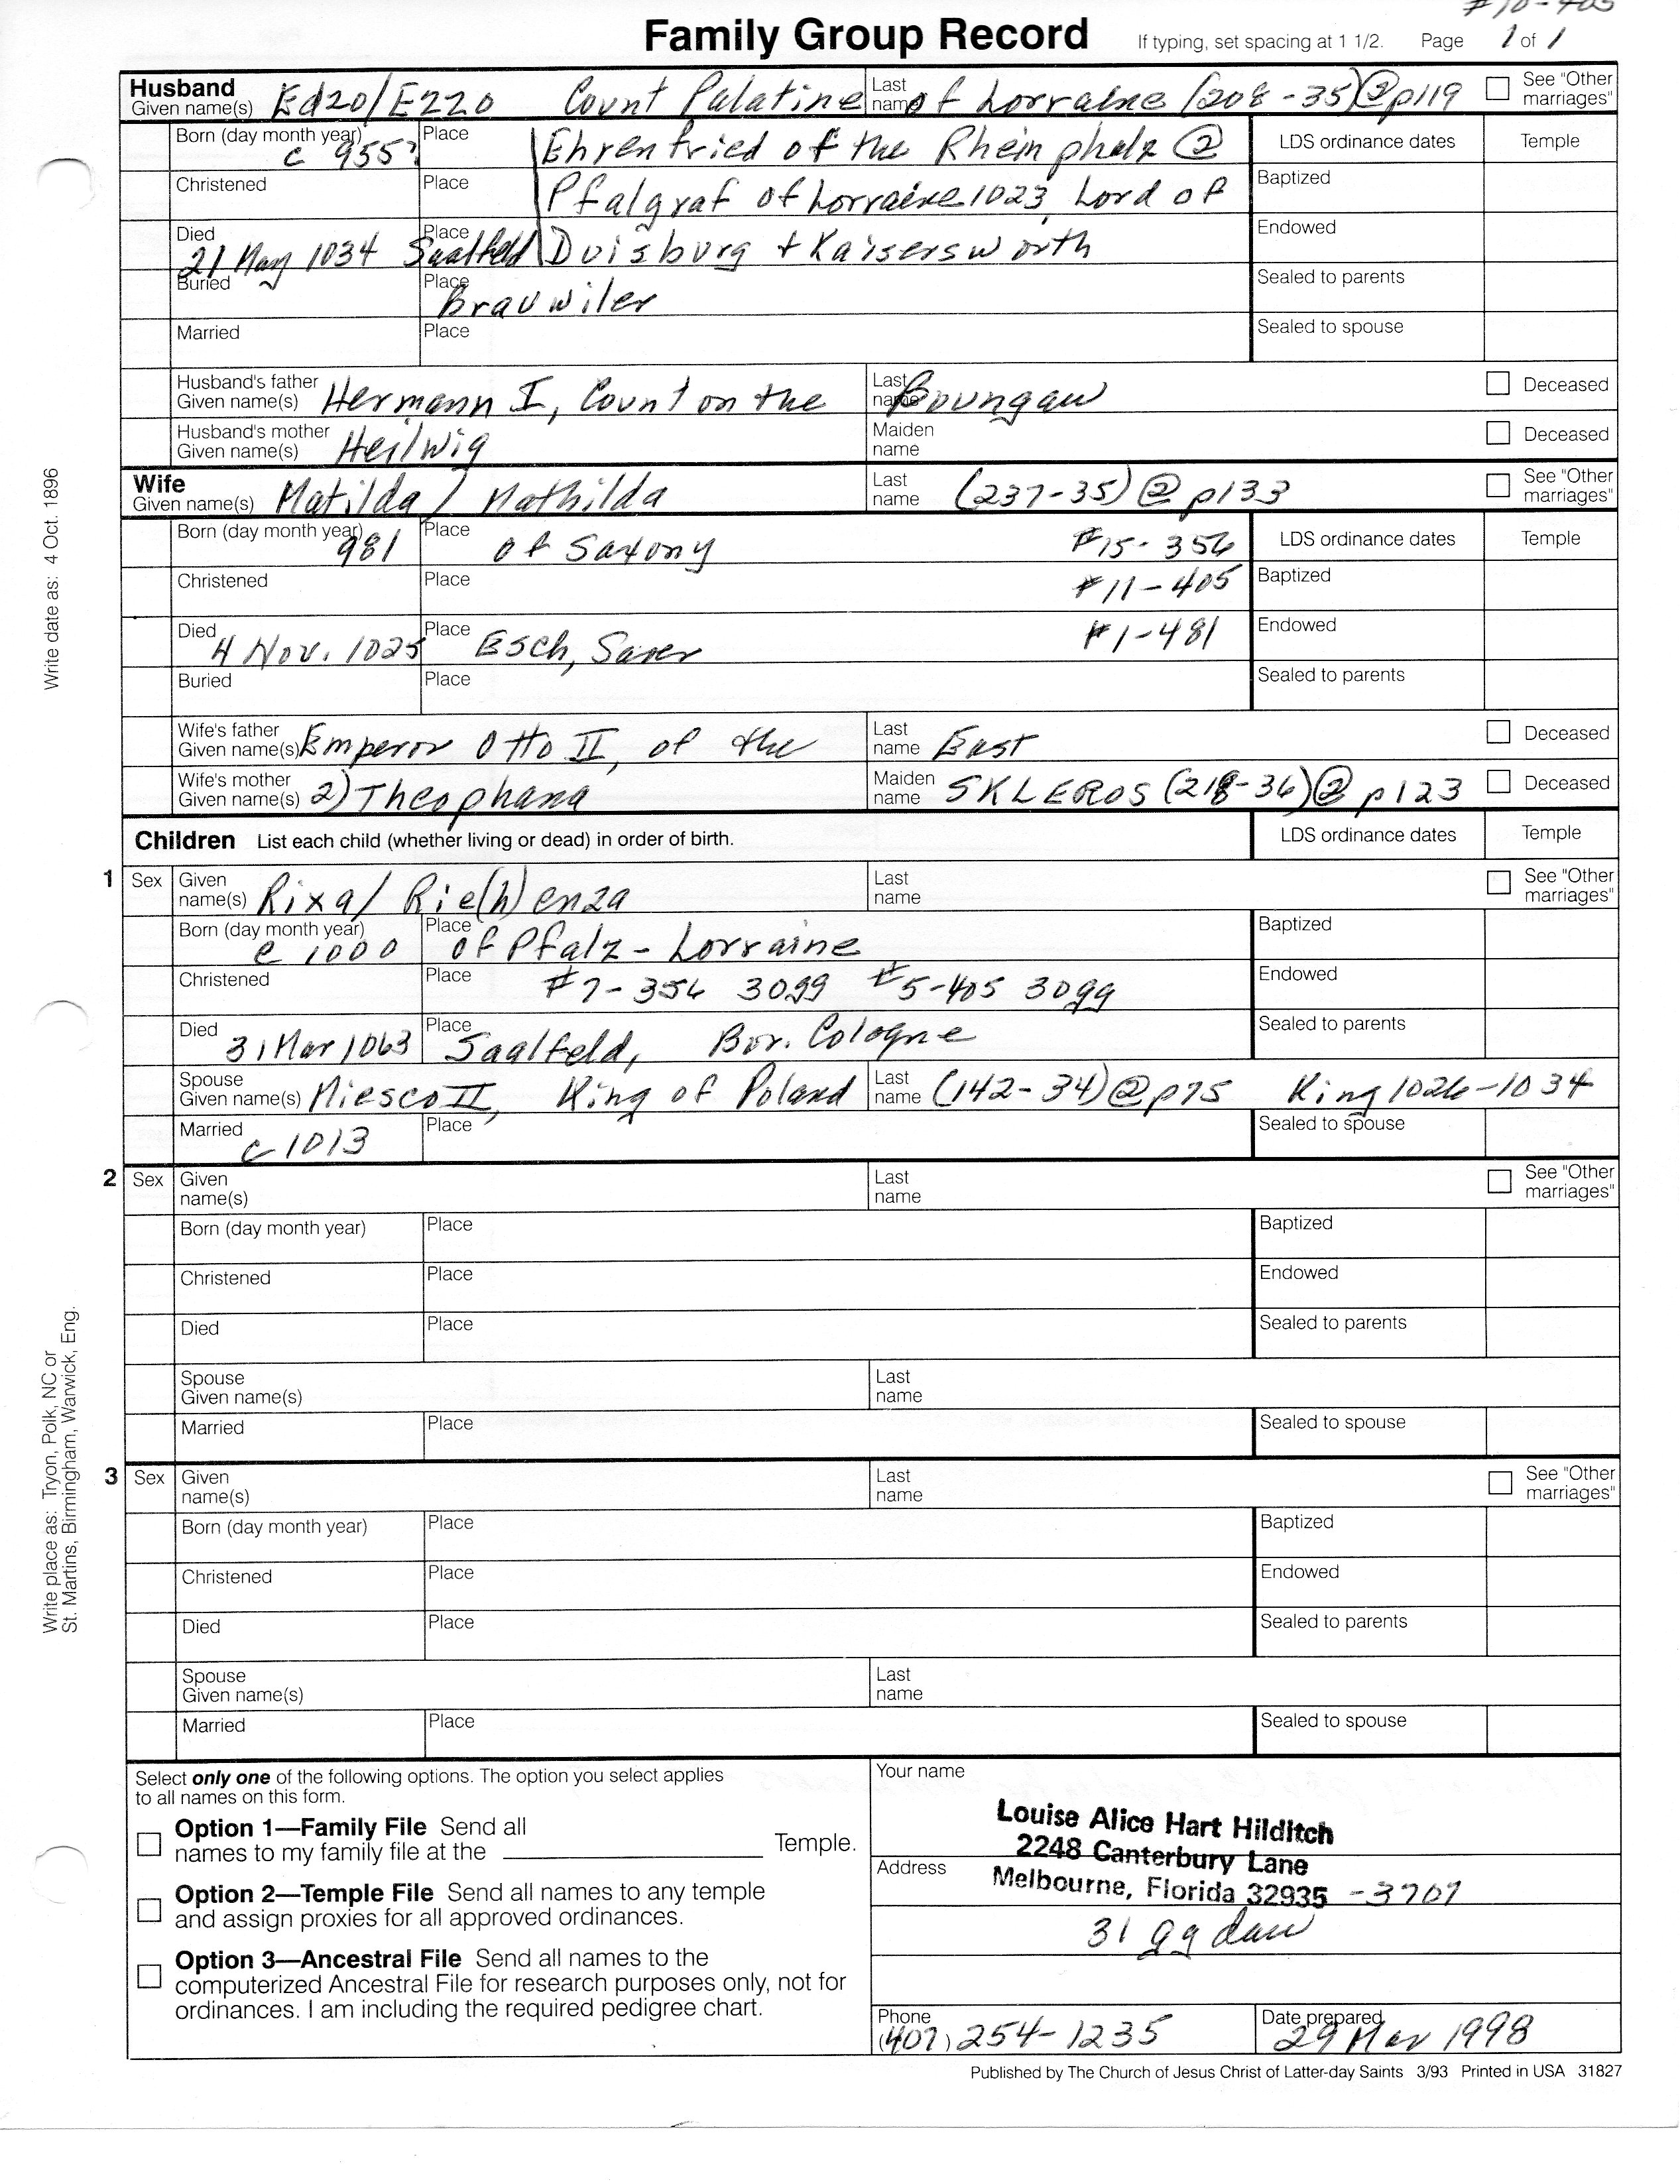 #10-405
Family Group Record If typing, set spacing at 1 1/2. Page 1 of 1
Husband
Given name(s) Edzo/Ezzo Count Palatine Last name of Lorraine (208-35)@p119 See "Other marriages"
Born (day month year) c 955? Place Ehrenfried of the Rheinphalz @ LDS ordinance dates Temple
Christened Place Pfalgraf of Lorraine 1023, Lord of Baptized
Died 21 May 1034 Place Saalfeld Duisburg + Kaisersworth Endowed
Buried Place Brauwiler Sealed to parents
Married Place Sealed to spouse
Husband's father Given name(s) Hermann I, Count on the Last name Boungaw Deceased
Husband's mother Given name(s) Heilwig Maiden name Deceased
Wife
Given name(s) Matilda / Mathilda Last name (237-35)@p133 See "Other marriages"
Born (day month year) 981 Place of Saxony #15-356 LDS ordinance dates Temple
Christened Place #11-405 Baptized
Died 4 Nov. 1025 Place Esch, #1-481 Endowed
Buried Place Sealed to parents
Wife's father Given name(s) Emperor Otto II, of the Last name East Deceased
Wife's mother Given name(s) 2) Theophana Maiden name SKLEROS (218-36)@ p123 Deceased
Children List each child (whether living or dead) in order of birth. LDS ordinance dates Temple
1 Sex Given name(s) Rixa/ Rie(h)enza Last name See "Other marriages"
Born (day month year) c 1000 Place of Pfalz-Lorraine Baptized
Christened Place #7-356 30gg #5-405 30gg Endowed
Died 31 Mar 1063 Place Saalfeld, Bur. Cologne Sealed to parents
Spouse Given name(s) Miesco II, King of Poland Last name (142-34)@p75 King 1026-1034
Married c 1013 Place Sealed to spouse
2 Sex Given name(s) Last name See "Other marriages"
Born (day month year) Place Baptized
Christened Place Endowed
Died Place Sealed to parents
Spouse Given name(s) Last name
Married Place Sealed to spouse
3 Sex Given name(s) Last name See "Other marriages"
Born (day month year) Place Baptized
Christened Place Endowed
Died Place Sealed to parents
Spouse Given name(s) Last name
Married Place Sealed to spouse
Select only one of the following options. The option you select applies
to all names on this form.
Option 1—Family File Send all
names to my family file at the Temple.
Option 2—Temple File Send all names to any temple
and assign proxies for all approved ordinances.
Option 3—Ancestral File Send all names to the
computerized Ancestral File for research purposes only, not for
ordinances. I am including the required pedigree chart.
Your name
Louise Alice Hart Hilditch
2248 Canterbury Lane
Address Melbourne, Florida 32935 -3707
31 gg dau
Phone (407) 254-1235 Date prepared 29 Mar 1998
Published by The Church of Jesus Christ of Latter-day Saints 3/93 Printed in USA 31827
Write date as: 4 Oct. 1896
Write place as: Tryon, Polk, NC or
St. Martins, Birmingham, Warwick, Eng.